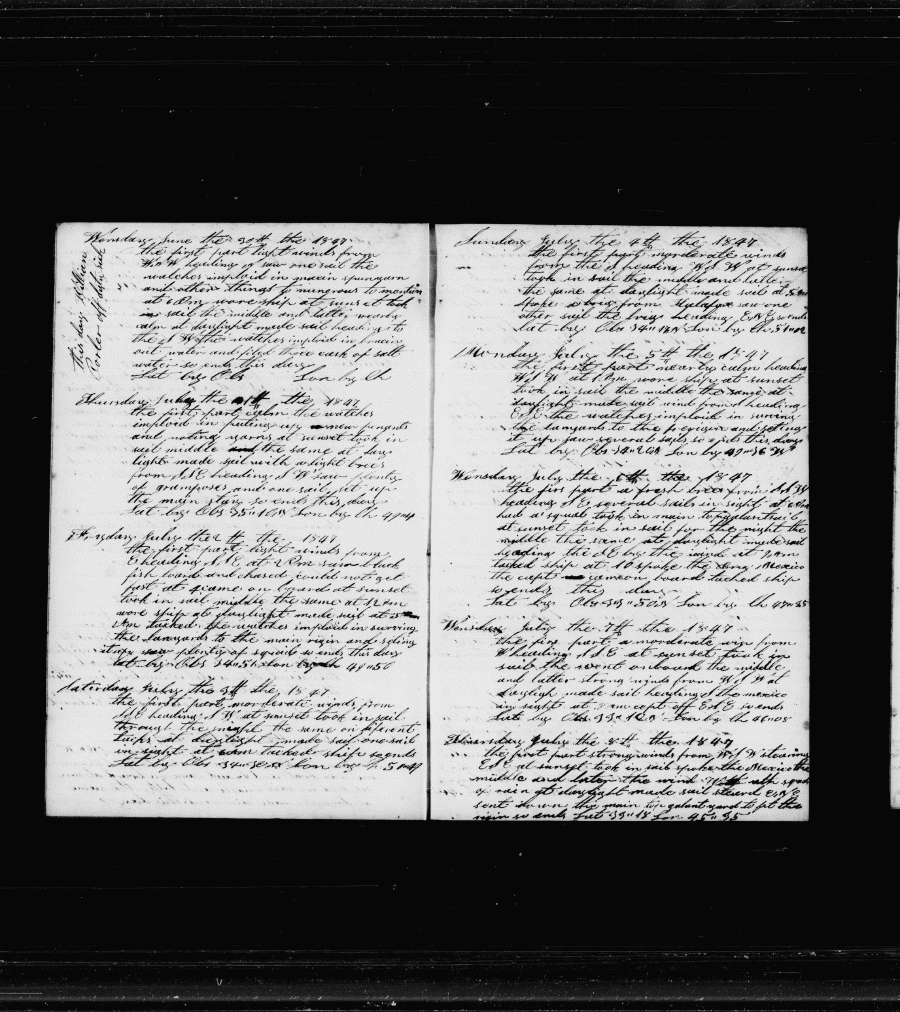 Wensday June the 30th the 1847
the first part light winds from
W N W heading S saw one sail the
watches imploid in macin spunyarn
and other things to numerous to mention
at 6 Pm wore ship at sunset took
in sail the middle and latter nearly
calm at daylight made sail heading to
the S W the watches imploid in breacin
out water and filed three cask of salt
water so ends this day
Lat by Obs Lon by Ch
this day William
off duty sick
Thursday July the 1th the 1847
the first part calm the watches
imploid in puting up new penants
and noting yarns at sunset took in
sail middle the same at day
light made sail with a light breez
from S S E heading S W saw plenty
of grampuses and one sail set up
the main stay so ends this day
Lat by Obs 35"10 N Lon by Ch
Fryday July the 2th the 1847
the first part light winds from
E heading N E at 2 Pm saw black
fish lowed and chased could not get
fast at 4 came on board at sunset
took in sail middle the same at 12 Am
wore ship at daylight made sail at 5
Am tacked the watches imploid in surving
the lanyards to the main rigin and seting
it up saw plenty of squid so ends this day
Lat by Obs 34" Lon 49"56
Saterday July the 3th the 1847
the first part morderate winds from
S S E heading S W at sunset took in sail
through the night the same on different
tacks at daylight made sail one sail
in sight at tacked ship so ends
Lat by Obs 34" Lon by
Sunday July the 4th the 1847
the first part morderate winds
from the S heading W S W at sunset
took in sail the middle and latter
the same at daylight made sail at
spoke a brig from saw one
other sail the brig heading E N E so ends
Lat by Obs 34" Lon by Ch
Monday July the 5th the 1847
the first part nearly calm heading
W S W at 1 Pm wore ship at sunset
took in sail the middle the same at
daylight made sail wind from heading
E S E the watches imploid in surving
the lanyards to the rigin and seting
it up saw several sails so ends this day
Lat by Obs 34" Lon by
Wensday July the 6th the 1847
the firs part a fresh breez from
heading S E several sails in sight at
had a squall took in main topgalantsail
at sunset took in sail for the night the
middle the same at daylight made sail
heading the S E by the wind at Am
tacked ship at 10 spoke the Mexico
the capt came on board tacked ship
so ends this day
Lat by Obs 34" Lon by Ch
Wensday July the 7th the 1847
the firs part a morderate win from
W heading S S E at sunset took in
sail the went onboard the middle
and latter strong winds from W S W at
dayligh made sail heading S the mexico
in sight at Am capt off E S E so ends
Lat by Obs 33" Lon by Ch 46"08
Thursday July the 8th the 1847
the first part strong winds from W S W stearing
E S E at sunset took in sail spoke the Mexico the
middle and later the wind
of rain at daylight made sail steard E S E
sent down the main top galant yard to fit the
rigin so ends Lat 33"18 Lon 45"35